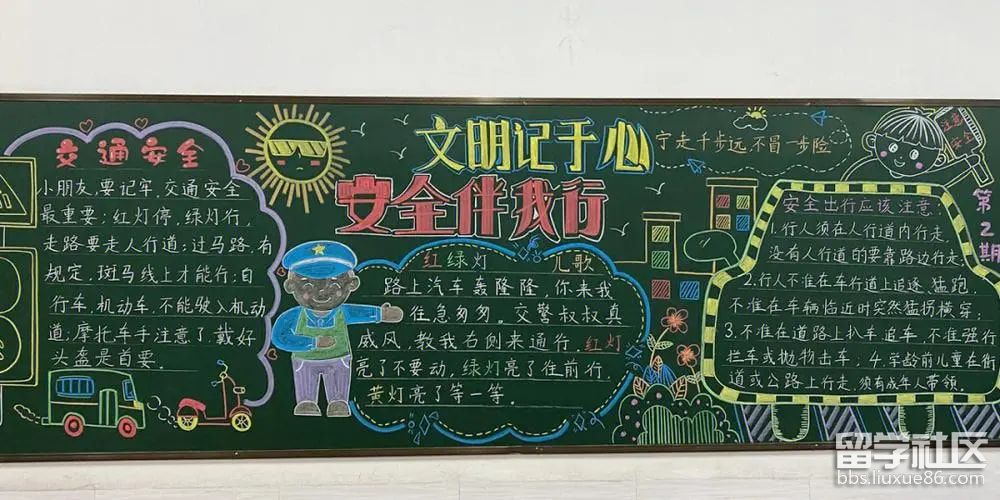 文明记于心
安全伴我行
宁走千步远,不冒一步险
注意
安全
第2期
交通安全
小朋友,要记牢,交通安全
最重要;红灯停,绿灯行,
走路要走人行道;过马路,有
规定,斑马线上才能行;自
行车,机动车,不能驶入机动
道;摩托车手注意了,戴好
头盔是首要。
红绿灯 儿歌
路上汽车轰隆隆,你来我
往急匆匆。交警叔叔真
威风,教我右侧来通行,红灯
亮了不要动,绿灯亮了往前行,
黄灯亮了等一等。
安全出行应该注意:
1.行人须在人行道内行走,
没有人行道的要靠路边行走;
2.行人不准在车行道上追逐、猛跑,
不准在车辆临近时突然猛拐横穿;
3.不准在道路上扒车、追车、不准强行
拦车或抛物击车;4.学龄前儿童在街
道或公路上行走,须有成年人带领。
留学社区
bbs.liuxue86.com